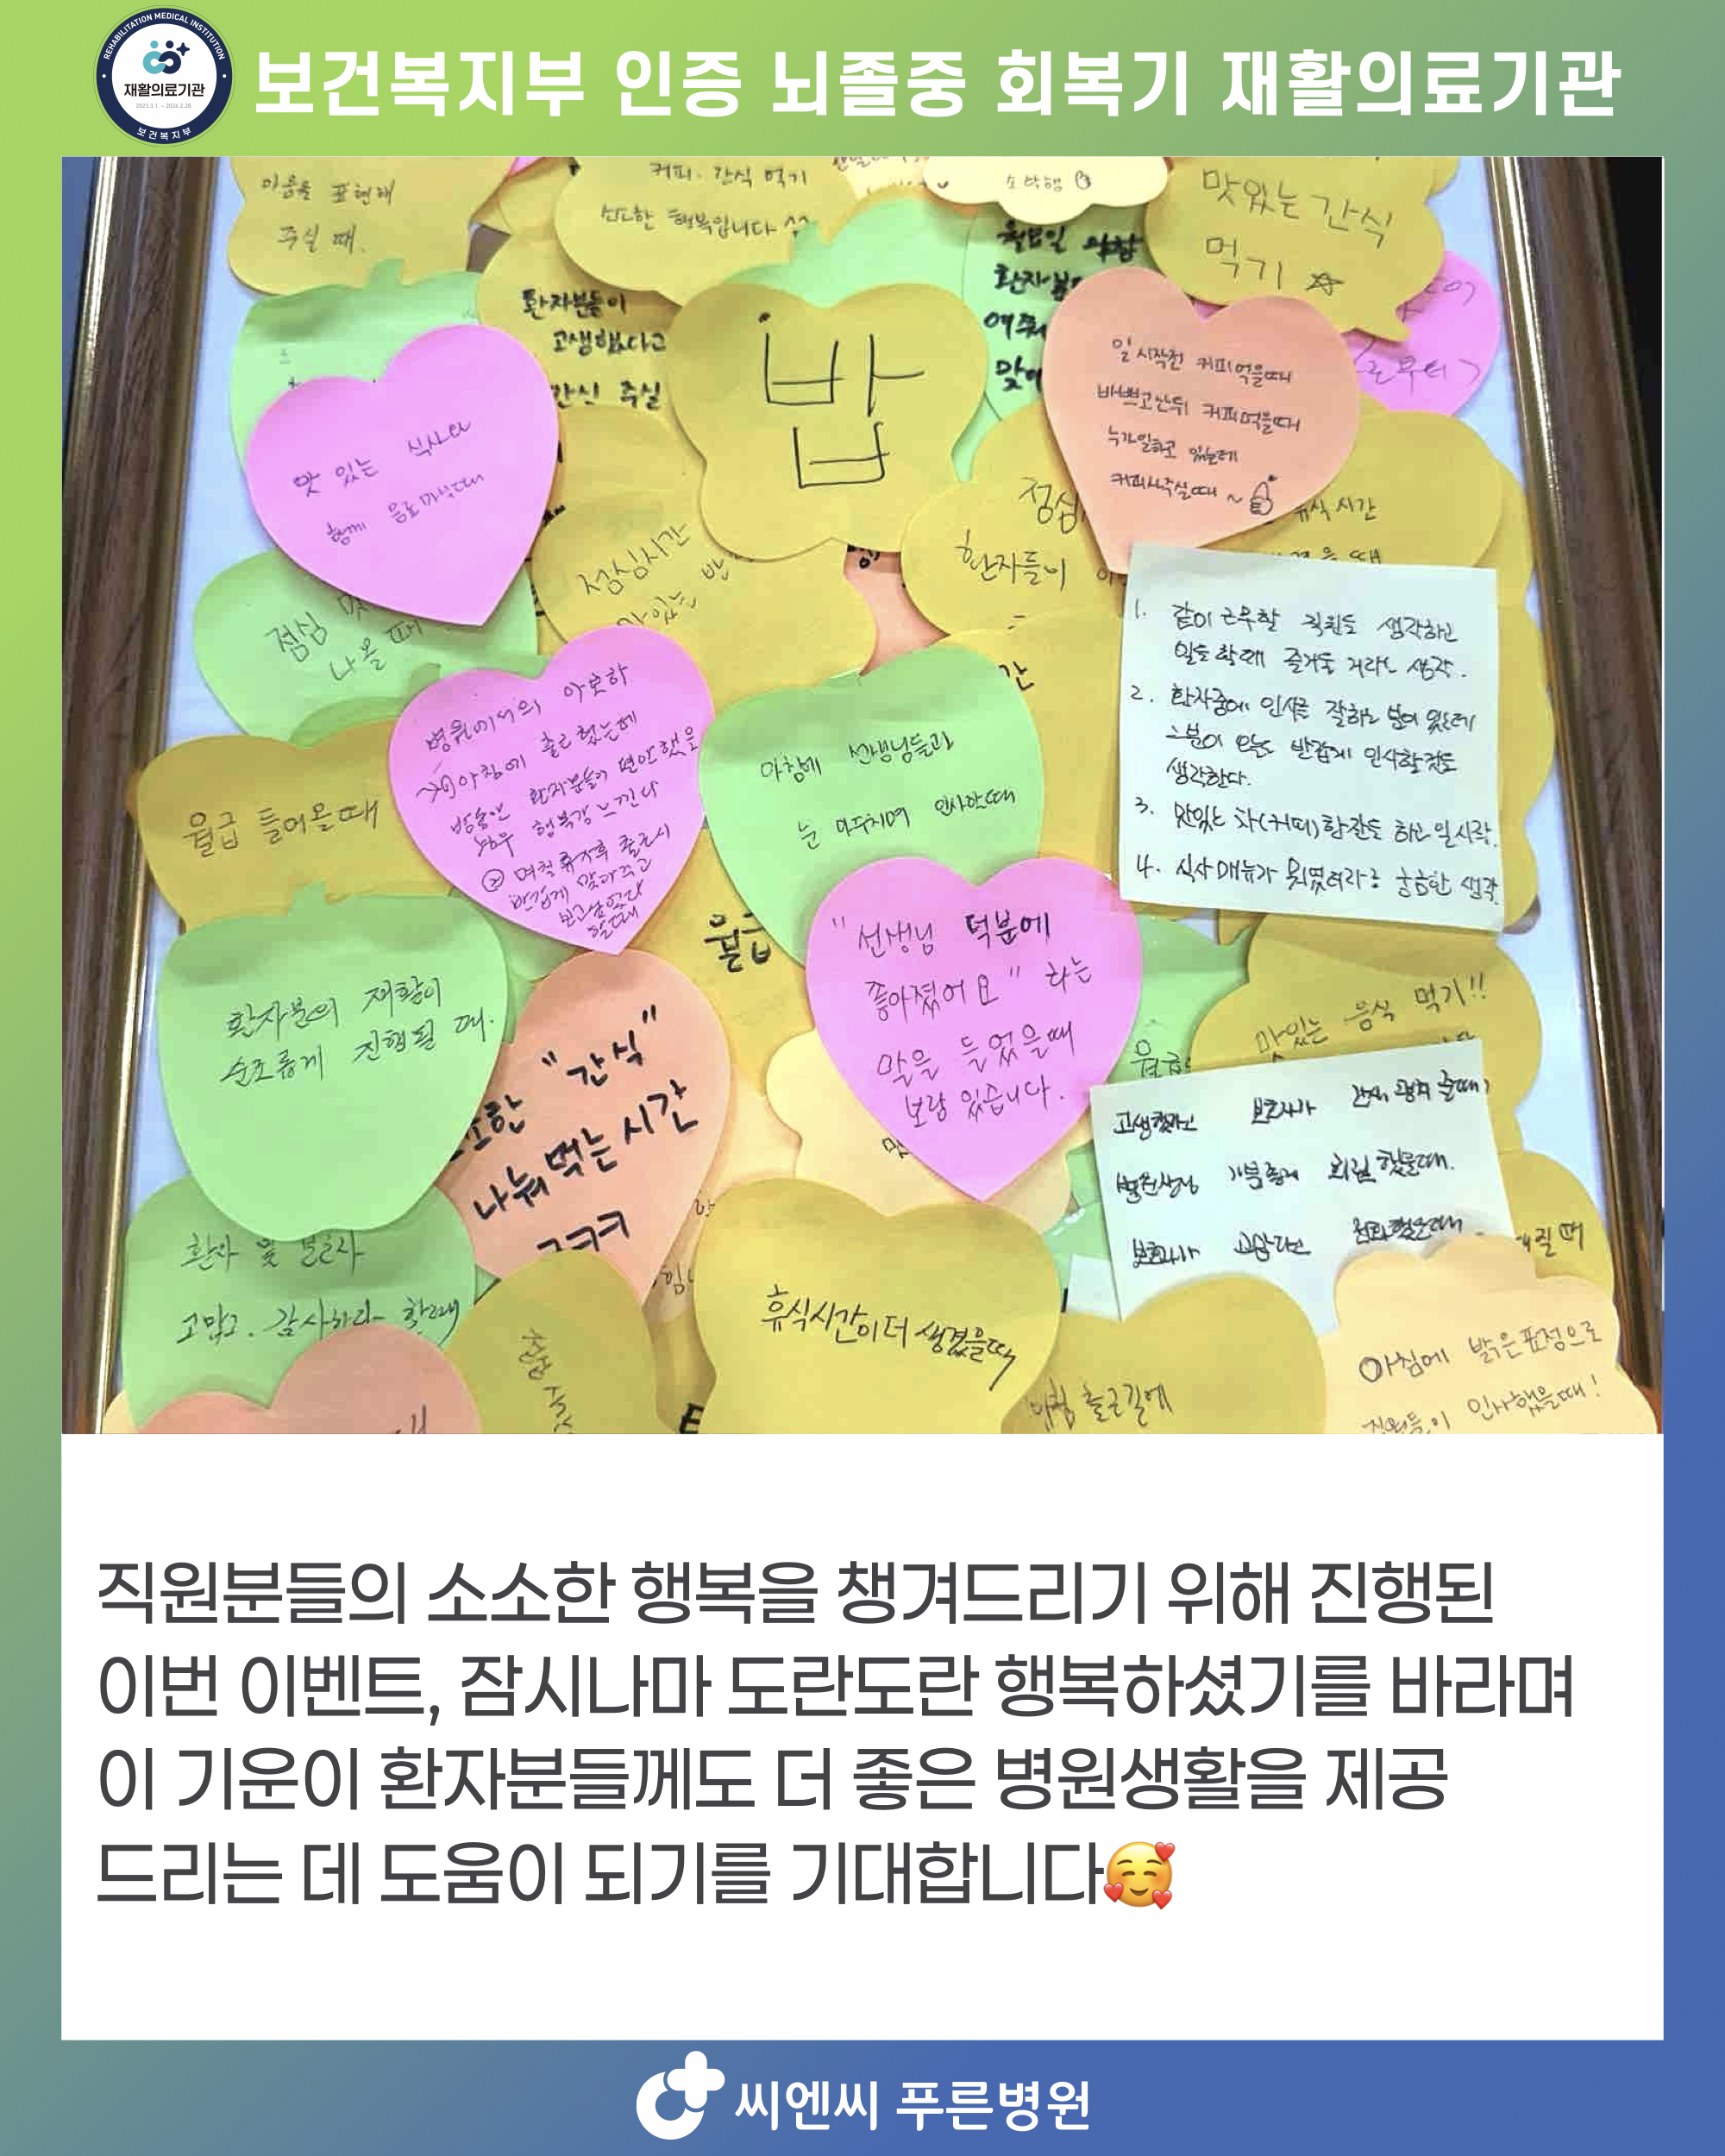 REHABILITATION MEDICAL INSTITUTION
재활의료기관
2023.3.1. ~ 2026.2.28.
보건복지부
보건복지부 인증 뇌졸중 회복기 재활의료기관
표현해
주실 때.
커피. 간식 먹기
소소한 행복입니다 ^^
소확행
맛있는 간식
먹기 ☆
월요일 아침
환자분
맞이
환자분들이
고생했다고
간식 주실
밥
일 시작전 커피먹을때
바쁘고난뒤 커피먹을때
누가일하고 있는데
커피사주실때 ~
맛 있는 식사와
함께 음료마실때
점심시간
맛있는 밥
점심
환자들이
휴식 시간
점심 맛
나올 때
1. 같이 근무할 직원들 생각하고
일을 할때 즐거울 거라는 생각.
2. 환자중에 인사를 잘하는 분이 있는데
그분이 오늘도 반갑게 인사할것을
생각한다.
3. 맛있는 차(커피)한잔을 하고 일시작.
4. 식사메뉴가 뭐였더라? 궁금한 생각
병원에서의
아침에 출근했는데
환자분들이 편안했을
행복감 느낀다
② 며칠 휴식후 출근시
반갑게 맞아주고
보고싶었다
할때
아침에 선생님들과
눈 마주치며 인사할때
월급 들어올때
월급
"선생님 덕분에
좋아졌어요" 하는
말을 들었을때
보람 있습니다.
환자분의 재활이
순조롭게 진행될 때.
소소한 "간식"
나눠 먹는 시간
ㅋㅋㅋ
월급
맛있는 음식 먹기!!
고생했다고 보호자가
기분좋게
보호자가 고맙다고
환자 및 보호자
고맙고. 감사하다 할때
휴식시간이더 생겼을때
아침 출근길에
질 때
아침에 밝은표정으로
직원들이 인사했을때!
직원분들의 소소한 행복을 챙겨드리기 위해 진행된
이번 이벤트, 잠시나마 도란도란 행복하셨기를 바라며
이 기운이 환자분들께도 더 좋은 병원생활을 제공
드리는 데 도움이 되기를 기대합니다🥰
씨엔씨 푸른병원